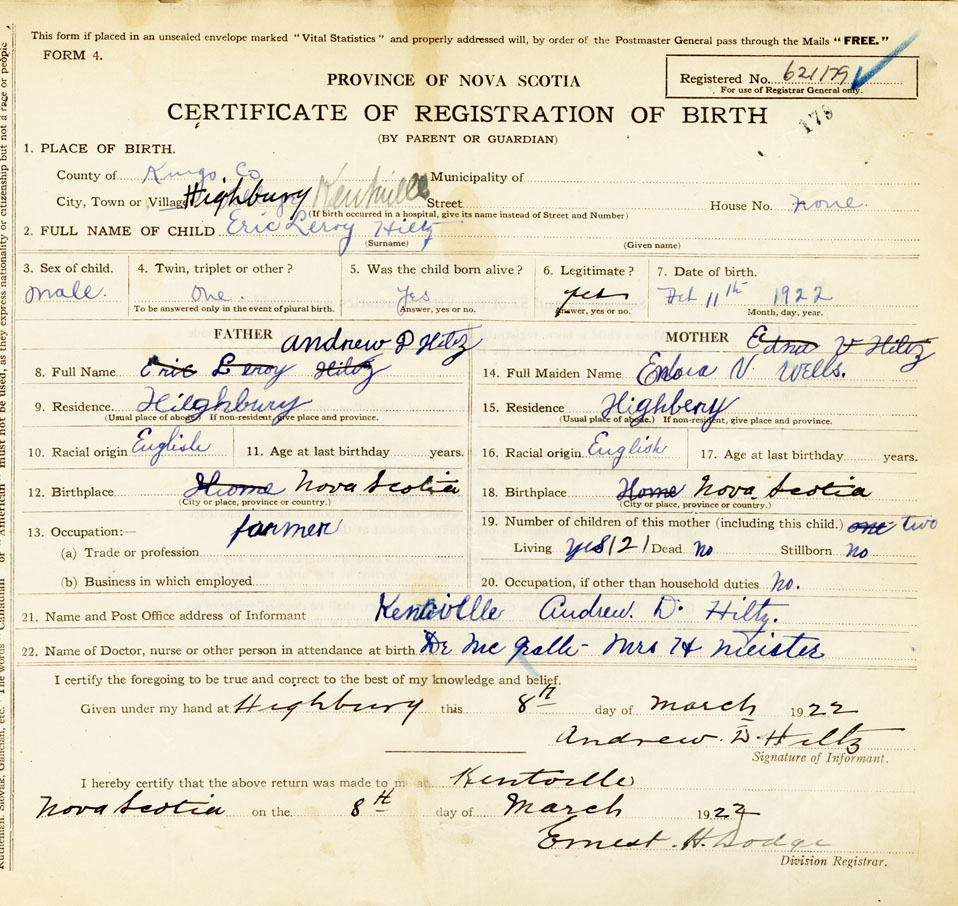 This form if placed in an unsealed envelope marked "Vital Statistics" and properly addressed will, by order of the Postmaster General pass through the Mails "FREE."
FORM 4.
Registered No. 621179
For use of Registrar General only.
PROVINCE OF NOVA SCOTIA
178
CERTIFICATE OF REGISTRATION OF BIRTH
(BY PARENT OR GUARDIAN)
1. PLACE OF BIRTH.
County of Kings Co Municipality of
City, Town or Village Highbury Kentville Street House No. none.
(If birth occurred in a hospital, give its name instead of Street and Number)
2. FULL NAME OF CHILD Eric Leroy Hiltz
(Surname) (Given name)
3. Sex of child. 4. Twin, triplet or other? 5. Was the child born alive? 6. Legitimate? 7. Date of birth.
male. one. Yes yes Feb 11th 1922
To be answered only in the event of plural birth. Answer, yes or no. Answer, yes or no. Month, day, year.
FATHER Andrew D Hiltz MOTHER Edna V Hiltz
8. Full Name Eric Leroy Hiltz 14. Full Maiden Name V. Wells.
9. Residence Hilghbury 15. Residence Highbery
(Usual place of abode.) If non-resident, give place and province. (Usual place of abode.) If non-resident, give place and province.
10. Racial origin English 11. Age at last birthday years. 16. Racial origin English 17. Age at last birthday years.
12. Birthplace Home Nova Scotia 18. Birthplace Home Nova Scotia
(City or place, province or country.) (City or place, province or country.)
13. Occupation:— farmer 19. Number of children of this mother (including this child.) one two
(a) Trade or profession Living yes (2) Dead no Stillborn No
(b) Business in which employed 20. Occupation, if other than household duties No.
21. Name and Post Office address of Informant Kentville Andrew. D. Hiltz.
22. Name of Doctor, nurse or other person in attendance at birth Dr Mc - Mrs H Meister
I certify the foregoing to be true and correct to the best of my knowledge and belief.
Given under my hand at Highbury this 8th day of March 1922
Andrew. D. Hiltz
Signature of Informant.
I hereby certify that the above return was made to me at Kentville
Nova Scotia on the 8th day of March 1922
Ernest. H. Dodge
Division Registrar.